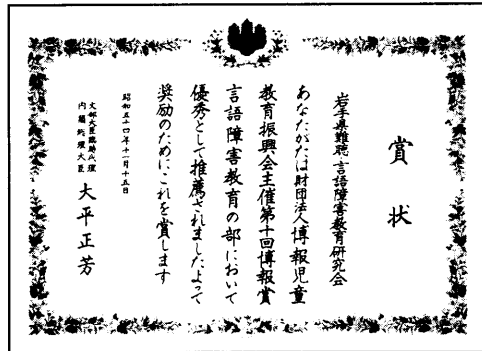 賞状
岩手県難聴・言語障害教育研究会
あなたがたは財団法人博報児童
教育振興会主催第十回博報賞
言語障害教育の部において
優秀として推薦されましたよって
奨励のためにこれを賞します
昭和五十四年十一月十五日
文部大臣臨時代理
内閣総理大臣 大平正芳